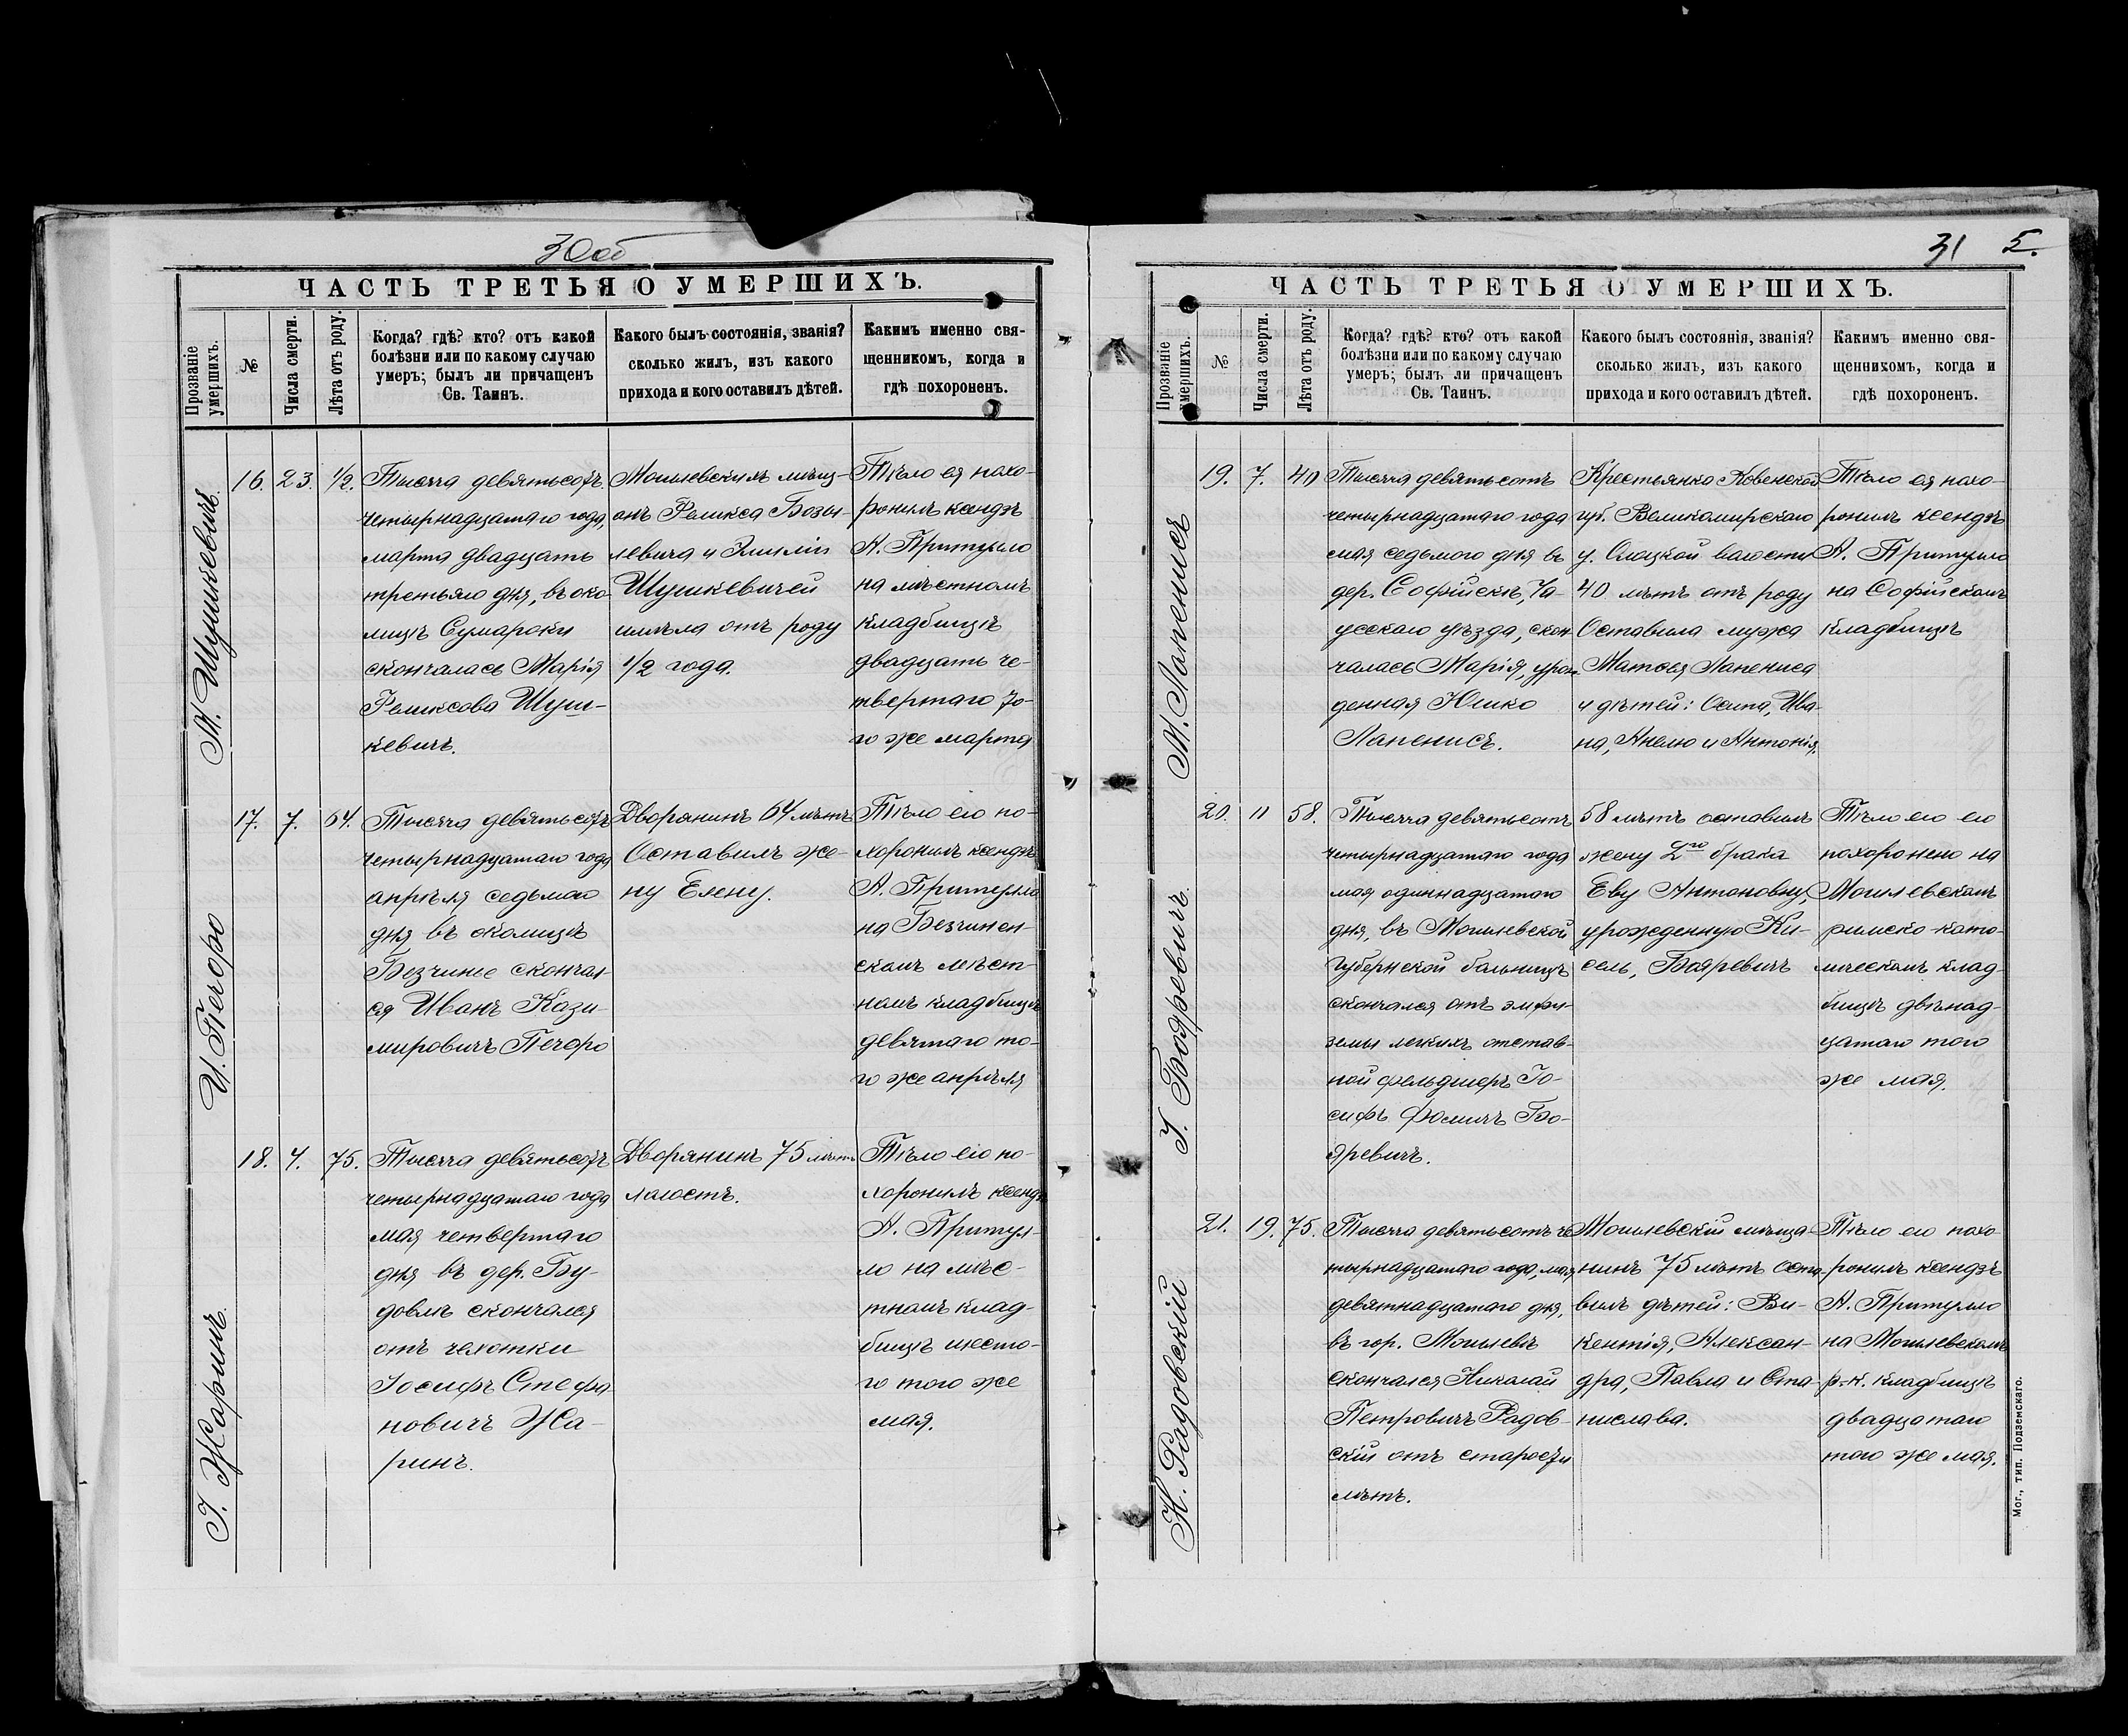 30об
ЧАСТЬ ТРЕТЬЯ О УМЕРШИХЪ.
Прозваніе умершихъ.
№
Числа смерти.
Лѣта отъ роду.
Когда? гдѣ? кто? отъ какой
болѣзни или по какому случаю
умеръ; былъ ли причащенъ
Св. Таинъ.
Какого былъ состоянія, званія?
сколько жилъ, изъ какого
прихода и кого оставилъ дѣтей.
Каким именно свя-
щенникомъ, когда и
гдѣ похороненъ.
М. Шушкевичъ
16. 23. 1/2.
Тысяча девятьсотъ
четырнадцатаго года,
марта двадцать
третьяго дня, въ око-
лицѣ Сумароки
скончалась Марія
Феликсова Шуш-
кевичъ.
Могилевскихъ мѣщ-
анъ Феликса
и Эмиліи
Шушкевичей
имѣла отъ роду
1/2 года.
Тѣло ея похо-
ронилъ ксендзъ
А. Притулло
на мѣстномъ
кладбищѣ
двадцать че-
твертаго то-
го же марта
И. Печоро
17. 7. 64.
Тысяча девятьсотъ
четырнадцатаго года
апрѣля седьмого
дня въ околицѣ
Безчинье скончал-
ся Иванъ Кази-
мировичъ Печоро
Дворянинъ 64 лѣтъ
Оставилъ же-
ну Елену.
Тѣло его по-
хоронилъ ксендзъ
А. Притулло
на Безчинен-
скомъ мѣст-
номъ кладбищѣ
девятаго то-
го же апрѣля
І. Жаринъ
18. 4. 75.
Тысяча девятьсотъ
четырнадцатаго года
мая четвертаго
дня въ дер. Бу-
довлѣ скончался
отъ чахотки
Іосифъ Стефа-
новичъ Жа-
ринъ.
Дворянинъ 75 лѣтъ
холостъ.
Тѣло его по-
хоронилъ ксендзъ
А. Притул-
ло на мѣс-
тномъ клад-
бищѣ шесто-
го того же
мая.
31 5.
ЧАСТЬ ТРЕТЬЯ О УМЕРШИХЪ.
Прозваніе умершихъ.
№
Числа смерти.
Лѣта отъ роду.
Когда? гдѣ? кто? отъ какой
болѣзни или по какому случаю
умеръ; былъ ли причащенъ
Св. Таинъ.
Какого былъ состоянія, званія?
сколько жилъ, изъ какого
прихода и кого оставилъ дѣтей.
Каким именно свя-
щенникомъ, когда и
гдѣ похороненъ.
М. Лапенисъ
19. 7. 40
Тысяча девятьсотъ
четырнадцатаго года
мая седьмого дня въ
дер. Софійскѣ, Ча-
усскаго уѣзда, скон-
чалась Марія, урож-
денная Юшко
Лапенисъ.
Крестьянка Ковенской
губ. Вилкомирскаго
у. волости
40 лѣтъ отъ роду
Оставила мужа
Матвея Лапениса
и дѣтей: Осипа, Ива-
на, Анелю и Антонія.
Тѣло ея похо-
ронилъ ксендзъ
А. Притулло
на Софійскомъ
кладбищѣ
І. Бояревичъ
20. 11 58.
Тысяча девятьсотъ
четырнадцатаго года
мая одиннадцатаго
дня, въ Могилевской
Губернской больницѣ
скончался отъ эмфи-
земы легкихъ отстав-
ной фельдшеръ Іо-
сифъ Фомичъ Бо-
яревичъ.
58 лѣтъ оставилъ
жену 2го брака
Еву Антоновну,
урожденную Ки-
сель, Бояревичъ
Тѣло его его
похоронено на
Могилевскомъ
римско-като-
лическомъ клад-
бищѣ двѣнад-
цатаго того
же мая.
Н. Радовскій
21. 19. 75.
Тысяча девятьсотъ че-
тырнадцатаго года, мая
девятнадцатаго дня,
въ гор. Могилевѣ
скончался Николай
Петровичъ Радов-
скій отъ старости
лѣтъ.
Могилевскій мѣща-
нинъ 75 лѣтъ оста-
вилъ дѣтей: Ви-
кентія, Алексан-
дра, Павла и Ста-
нислава.
Тѣло его похо-
ронилъ ксендзъ
А. Притулло
на Могилевскомъ
р.-к. кладбищѣ
двадцатаго
того же мая.
Мог., тип. Подземскаго.